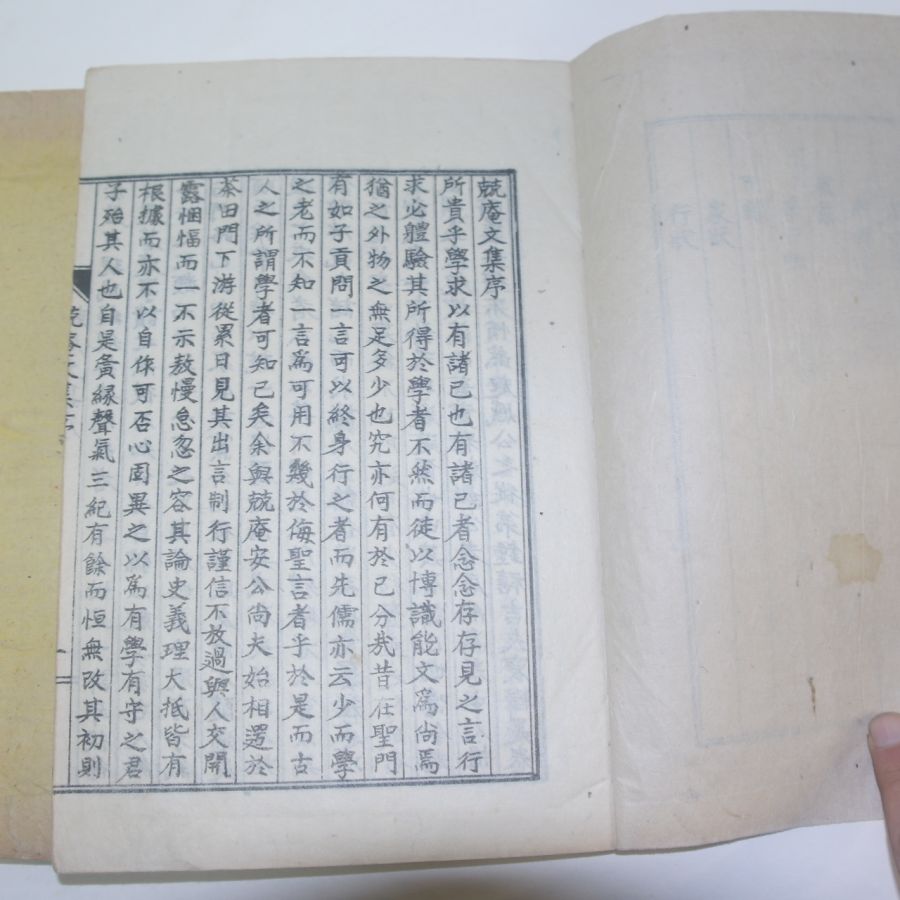 兢庵文集序
所貴乎學求以有諸己也有諸己者念念存存見之言行
求必體驗其所得於學者不然而徒以博識能文爲尚焉
猶之外物之無足多少也究亦何有於己分哉昔在聖門
有如子貢問一言可以終身行之者而先儒亦云少而學
之老而不知一言爲可用不幾於侮聖言者乎於是而古
人之所謂學者可知已矣余與兢庵安公尚夫始相遌於
茶田門下游從累日見其出言制行謹信不放過與人交開
露悃愊而一不示敖慢怠忽之容其論史義理大抵皆有
根據而亦不以自作可否心固異之以爲有學有守之君
子殆其人也自是夤緣聲氣三紀有餘而恒無改其初則
兢庵文集序
一